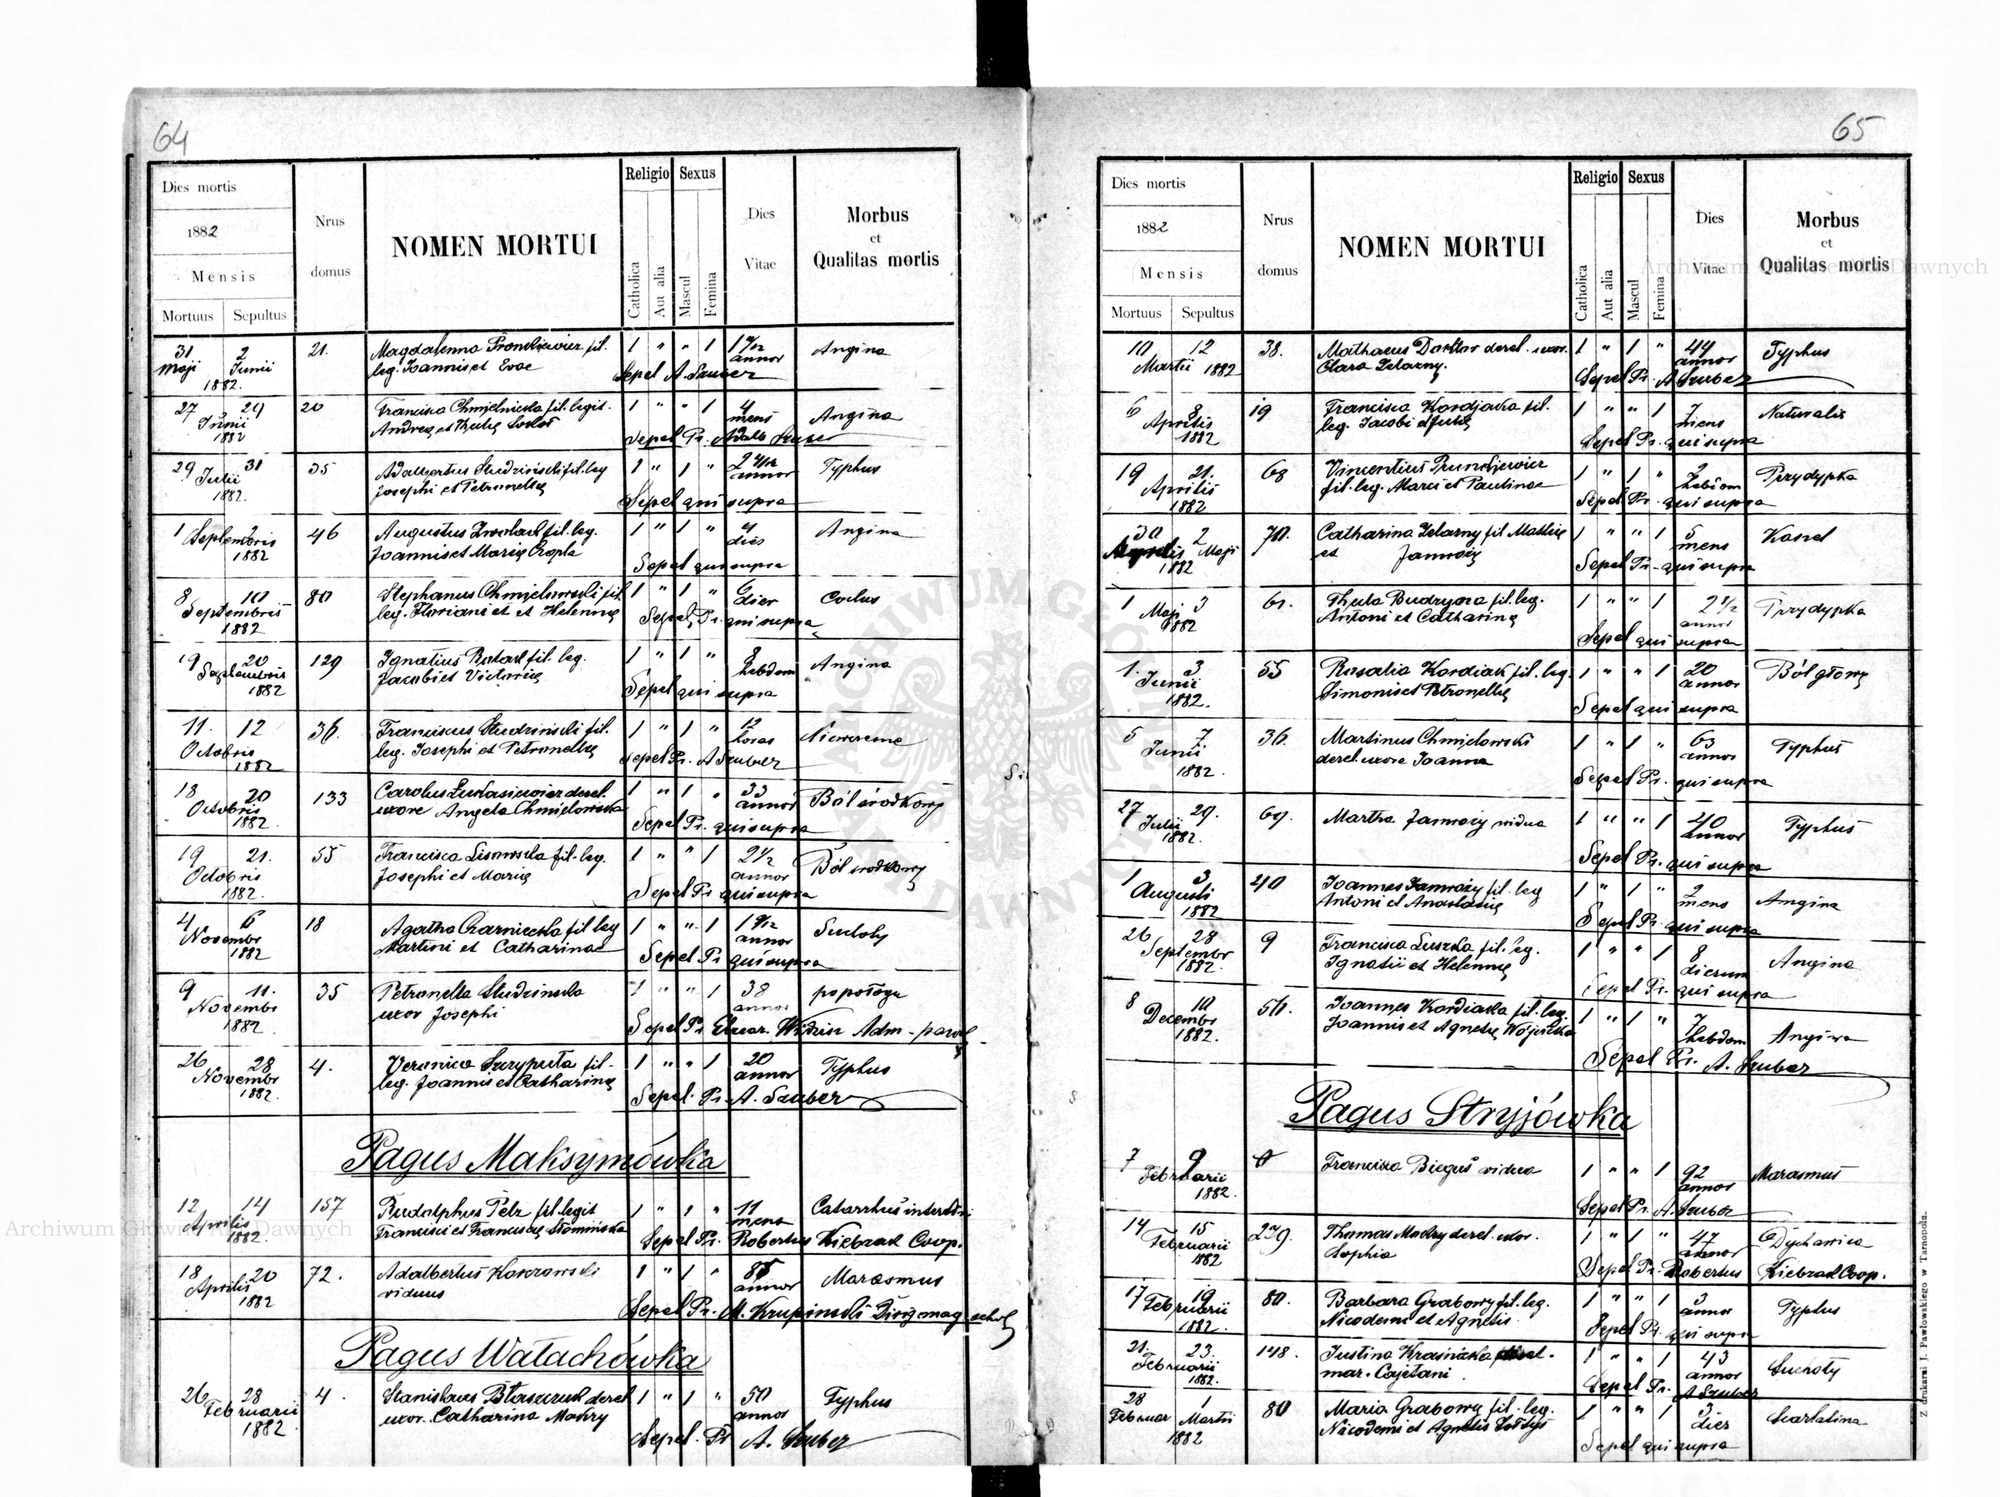 64
Dies mortis
1882
Mensis
Mortuus Sepultus
Nrus domus
NOMEN MORTUI
Religio Sexus
Catholica Aut alia Mascul Femina
Dies Vitae
Morbus et Qualitas mortis
31 Maji 2 Junii 1882. 21. Magdalenna fil. 1 " " 1 1 annor Angina
leg. Joannis et Evae Sepel A. Szuber
27 29 Junii 1882 20 Francisca Chmielnicka fil. legit. 1 " " 1 4 mens Angina
Andreę et Sepel Pr. Adalb
29 31 Julii 1882. 35 Adalbertus Studziński fil. leg 1 " 1 " 2 annor Typhus
Josephi et Petronellę Sepel qui supra
1 2 Septembris 1882 46 Augustus fil. leg. 1 " 1 " 4 dies Angina
Joannis et Marię Czopla Sepel qui supra
8 10 Septembris 1882 80 Stephanus Chmielowski fil. 1 " 1 " 6 dier
leg. Floriani et et Helennę Sepel Pr. qui supra
19 20 Septembris 1882 129 Ignatius fil. leg. 1 " 1 " 8 hebdom Angina
Jacobi et Victorię Sepel qui supra
11. 12 Octobris 1882 36. Franciscus Studziński fil. 1 " 1 " 12 horas
leg. Josephi et Petronellę Sepel Pr. A Szuber
18 20 Octobris 1882. 133 Carolus Łukasiewicz derel. 1 " 1 " 33 annor Ból środkowy
uxore Angela Chmielowska Sepel Pr. qui supra
19 21. Octobris 1882. 55 Francisca Lisowska fil. leg. 1 " " 1 2 1/2 annor Ból środkowy
Josephi et Marię Sepel Pr qui supra
4 6 Novembr 1882 18 Agatha Czarniecka fil leg 1 " " 1 1 annor Suchoty
Martini et Catharinae Sepel Pr qui supra
9 11. Novembr 1882. 35 Petronella Studzinska 1 " " 1 38 annor popołogu
uxor Josephi Sepel Pr Adm. paroch
26 28 Novembr 1882. 4. Veronica Skrypuła fil. 1 " " 1 20 annor Typhus
leg. Joannis et Catharinę Sepel. Pr. A. Szuber
Pagus Maksymówka
12 14 Aprilis 1882. 157 Rudolphus Pelz fil legit 1 " 1 " 11 mens Catarrhus intestini
Francisci et Franciscę Słomińska Sepel Pr. Robertus Kiebzak Coop.
18 20 Aprilis 1882 72. Adalbertus 1 " 1 " 85 annor Marasmus
viduus Sepel Pr. M. Krupiński
Pagus Wałachówka
26 28 Februarii 1882. 4. Stanislaus Błaszczuk derel 1 " 1 " 50 annor Typhus
uxor. Catharina Mokry Sepel. Pr A. Szuber
65
Dies mortis
1882
Mensis
Mortuus Sepultus
Nrus domus
NOMEN MORTUI
Religio Sexus
Catholica Aut alia Mascul Femina
Dies Vitae
Morbus et Qualitas mortis
10 12 Martii 1882 38. Mathaeus derel. uxor. 1 " 1 " 44 annor Typhus
Clara Żelazny. Sepel Pr. A Szuber
6 8 Aprilis 1882 19 Francisca Kordjaka fil. 1 " " 1 7 mens Naturalis
leg. Jacobi et Julię Sepel Pr. qui supra
19 21. Aprilis 1882 68 Vincentius fil. leg. Marci et Paulinae 1 " 1 " 2 hebdom Przydypka
Sepel Pr. qui supra
30 Aprilis 2 Maji 1882 70. Catharina Żelazny fil Mathię 1 " " 1 5 mens Kaszel
et Jamroży Sepel Pr. qui supra
1 3 Maji 1882 61. Thecla Budryma fil. leg. 1 " " 1 2 1/2 annor Przydypka
Antoni et Catharinę Sepel qui supra
1. 3 Junii 1882. 55 Rosalia Kordiak fil. leg. 1 " " 1 20 annor Ból głowy
Simonis et Petronellę Sepel qui supra
5 7 Junii 1882. 36. Martinus Chmielowski 1 " 1 " 63 annor Typhus
derel. uxore Joanna Sepel Pr. qui supra
27 29. Julii 1882. 69. Martha Jamroży vidua 1 " " 1 40 annor Typhus
Sepel Pr. qui supra
1 3 Augusti 1882 240 Joannes Jamroży fil. leg 1 " 1 " 2 mens Angina
Antoni et Anastasię Sepel Pr. qui supra
26 28 Septembr 1882. 9 Francisca Luszka fil. leg. 1 " " 1 8 dierum Angina
Ignatii et Helennę Sepel Pr. qui supra
8 10 Decembr 1882. 50. Joannes Kordiaka fil. leg. 1 " 1 " 7 hebdom Angina
Joannis et Agnetę Wojcicka Sepel Pr. A. Szuber
Pagus Stryjówka
7 9 Februarii 1882. Francisca Bieguś vidua 1 " " 1 92 annor Marasmus
Sepel Pr. A. Szuber
14 15 Februarii 1882 Thomas Mokry derel. uxor. 1 " 1 " 47 annor Dychawica
Sophia Sepel Pr. Robertus Kiebzak Coop.
17 19 Februarii 1882. 80. Barbara Grabowy fil. leg. 1 " " 1 3 annor Typhus
Nicodemi et Agnetis Sepel Pr. qui supra
21. 23. Februarii 1882. 148. Justina Krasnicka derel. 1 " " 1 43 annor Suchoty
mar. Cajetani Sepel Pr. A Szuber
28 Februar 1 Martii 1882 80 Maria Grabowy fil. leg. 1 " " 1 3 dies Scarlatina
Nicodemi et Agnetis Sołtys Sepel qui supra
Z drukarni J. Pawłowskiego w Tarnopolu.
Archiwum Główne Akt Dawnych
Archiwum Główne Akt Dawnych
ARCHIWUM GŁÓWNE AKT DAWNYCH